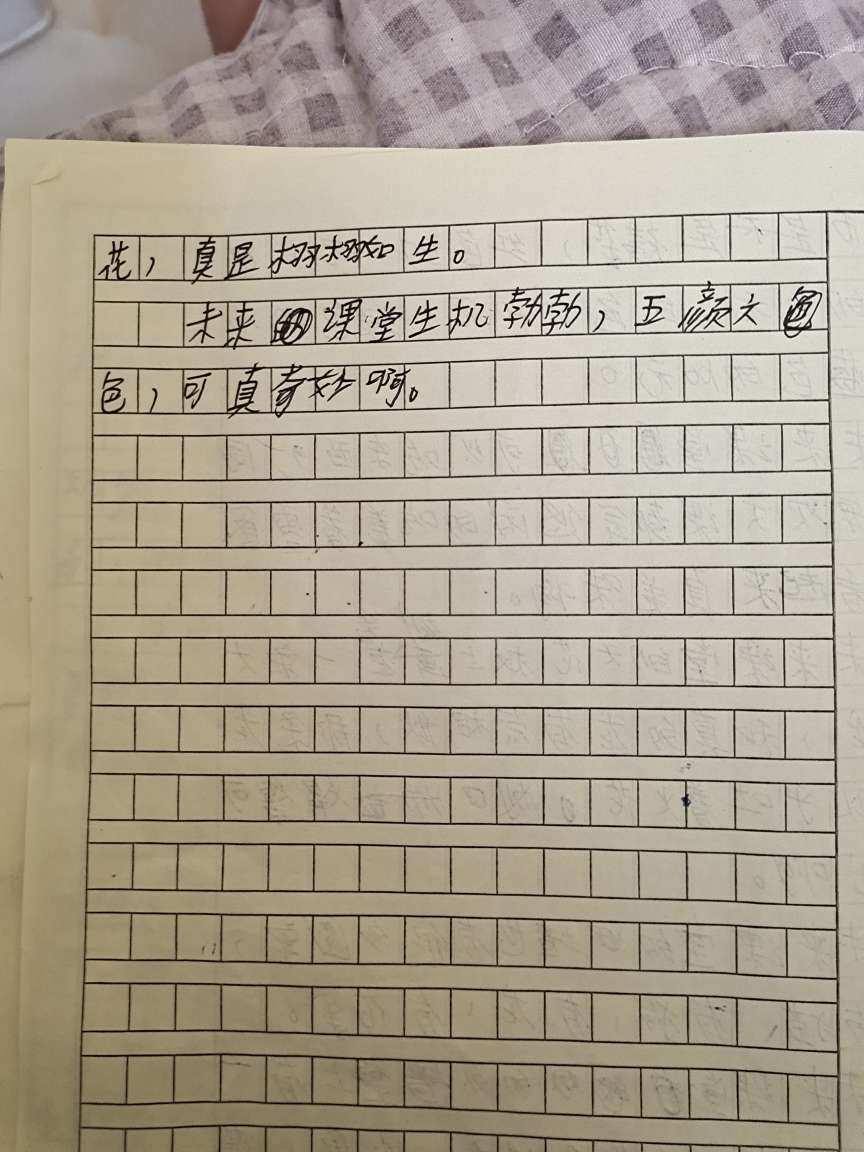 花，真是栩栩如生。
未来课堂生机勃勃，五颜六
色，可真奇妙啊。